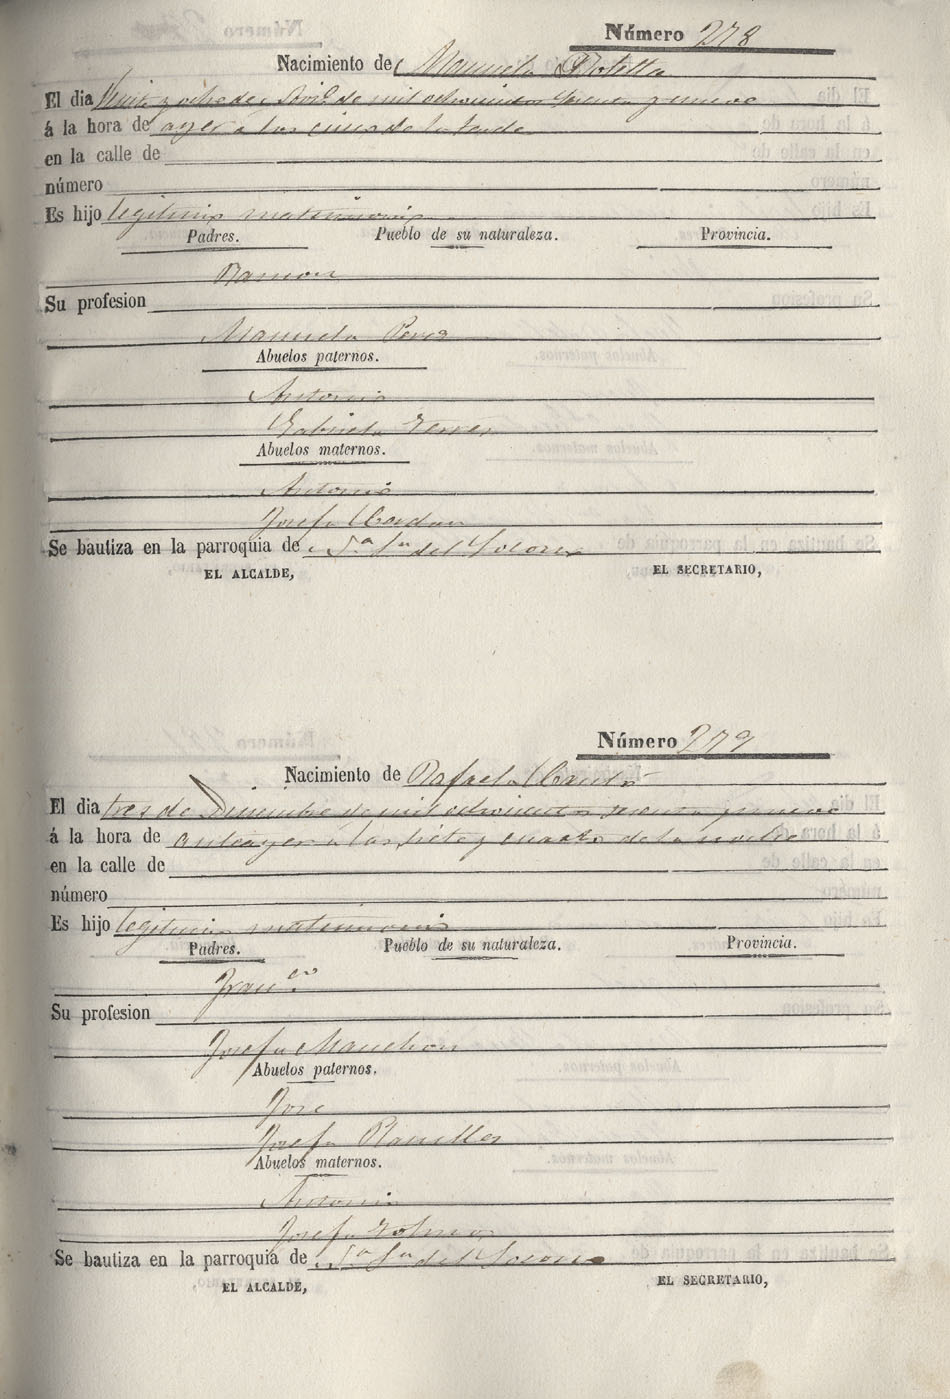 Número 278
Nacimiento de Manuela Botella
El dia veinte y ocho de Nov.e de mil ochocientos sesenta y nueve
á la hora de ayer a las cinco de la tarde
en la calle de
número
Es hijo legitimo matrimonio
Padres. Pueblo de su naturaleza. Provincia.
Ramon
Su profesion
Manuela Perez
Abuelos paternos.
Antonio
Gabriela Ferrer
Abuelos maternos.
Antonio
Josefa
Se bautiza en la parroquia de N.a S.ra del Socorro
EL ALCALDE, EL SECRETARIO,
Número 279
Nacimiento de Rafaela Cantó
El dia tres de Diciembre de mil ochocientos sesenta y nueve
á la hora de anteayer a las siete y cuarto de la noche
en la calle de
número
Es hijo legitimo matrimonio
Padres. Pueblo de su naturaleza. Provincia.
Fran.co
Su profesion
Josefa Manchon
Abuelos paternos.
Jose
Josefa Planelles
Abuelos maternos.
Antonio
Josefa
Se bautiza en la parroquia de N.a S.ra del Socorro
EL ALCALDE, EL SECRETARIO,